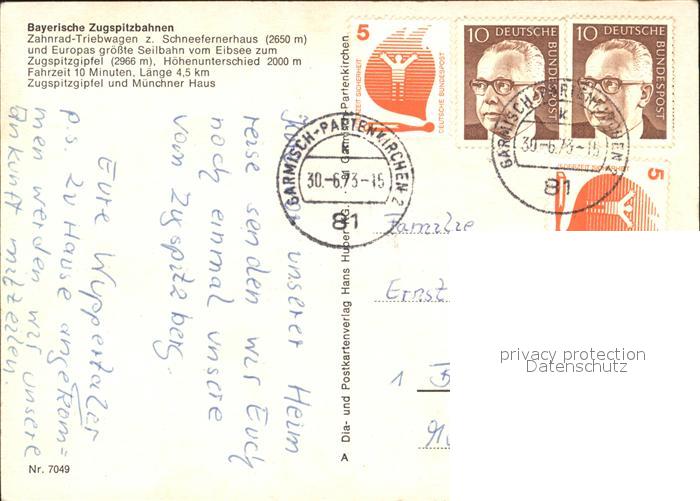 Bayerische Zugspitzbahnen
Zahnrad-Triebwagen z. Schneefernerhaus (2650 m)
und Europas größte Seilbahn vom Eibsee zum
Zugspitzgipfel (2966 m), Höhenunterschied 2000 m
Fahrzeit 10 Minuten, Länge 4,5 km
Zugspitzgipfel und Münchner Haus
unserer Heim
reise senden wir Euch
noch einmal unsere
vom Zugspitzberg.
Eure Wuppertaler
P.S. Zu Hause angekom=
men werden wir unsere
Ankunft mitteilen.
Nr. 7049
A Dia- und Postkartenverlag Hans Huber KG. Garmisch-Partenkirchen
5
JEDERZEIT SICHERHEIT
DEUTSCHE BUNDESPOST
10 DEUTSCHE BUNDESPOST
10 DEUTSCHE BUNDESPOST
5
JEDERZEIT SICHERHEIT
GARMISCH-PARTENKIRCHEN 2
30.-6.73-15
81
GARMISCH-PARTENKIRCHEN 2
k
30.-6.73-15
81
Familie
Ernst
1
privacy protection
Datenschutz